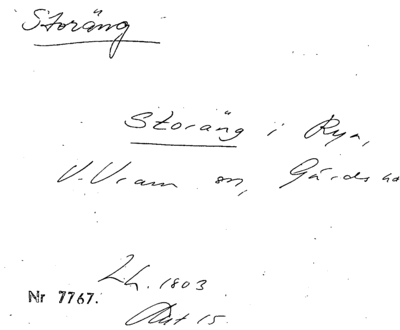 Storäng
Storäng i Rya,
V. Vram sn, Gärds hd
Lh. 1803
Nr 7767.
Akt 15.